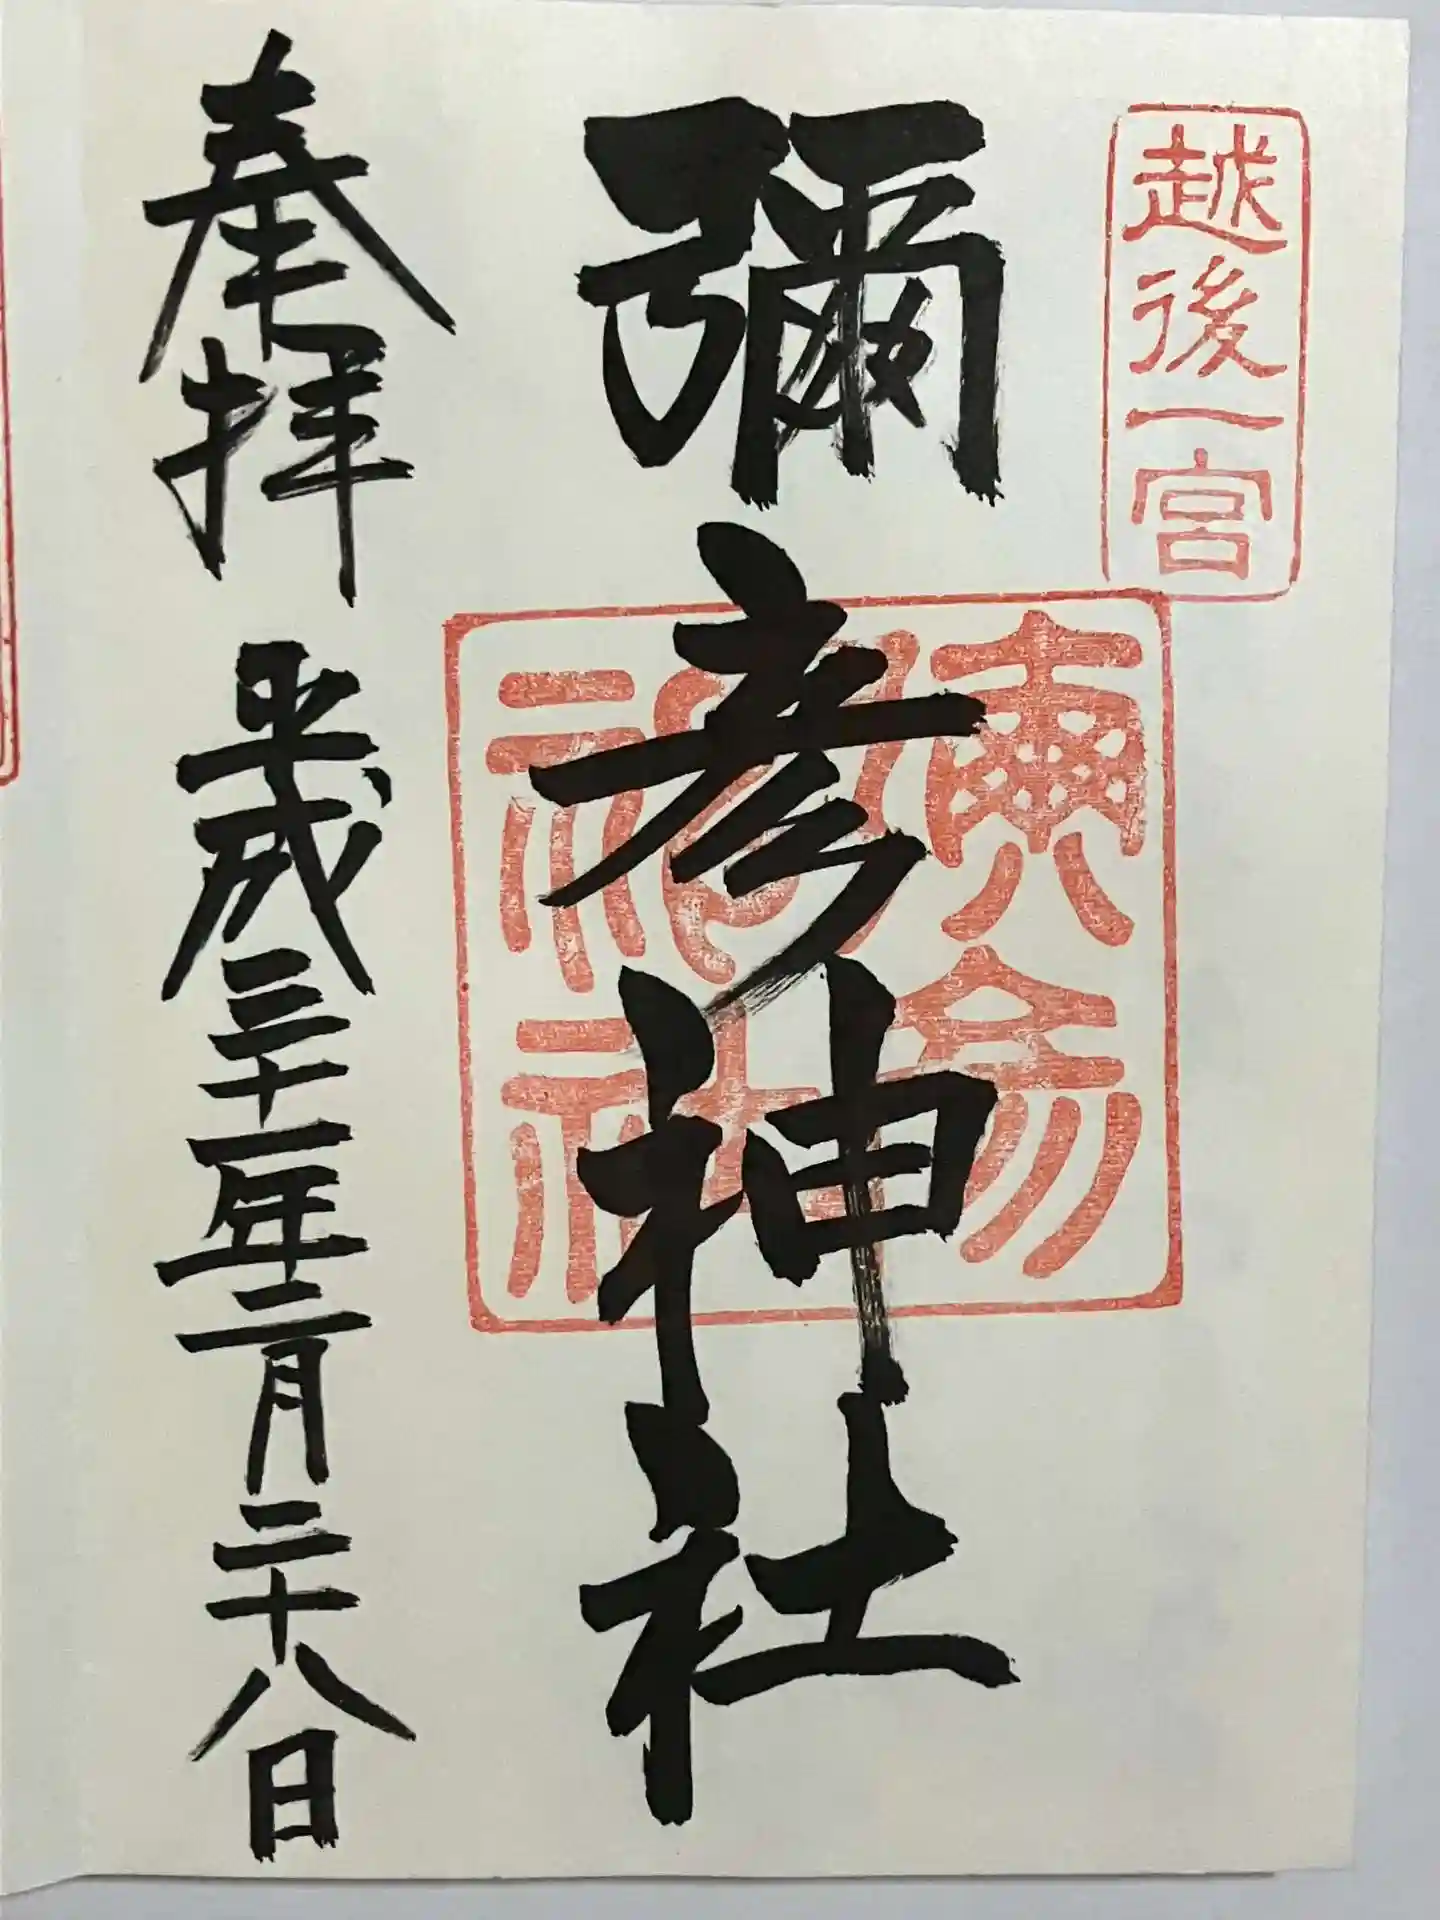 越後一宮
彌彦神社
奉拝 平成三十一年二月二十八日